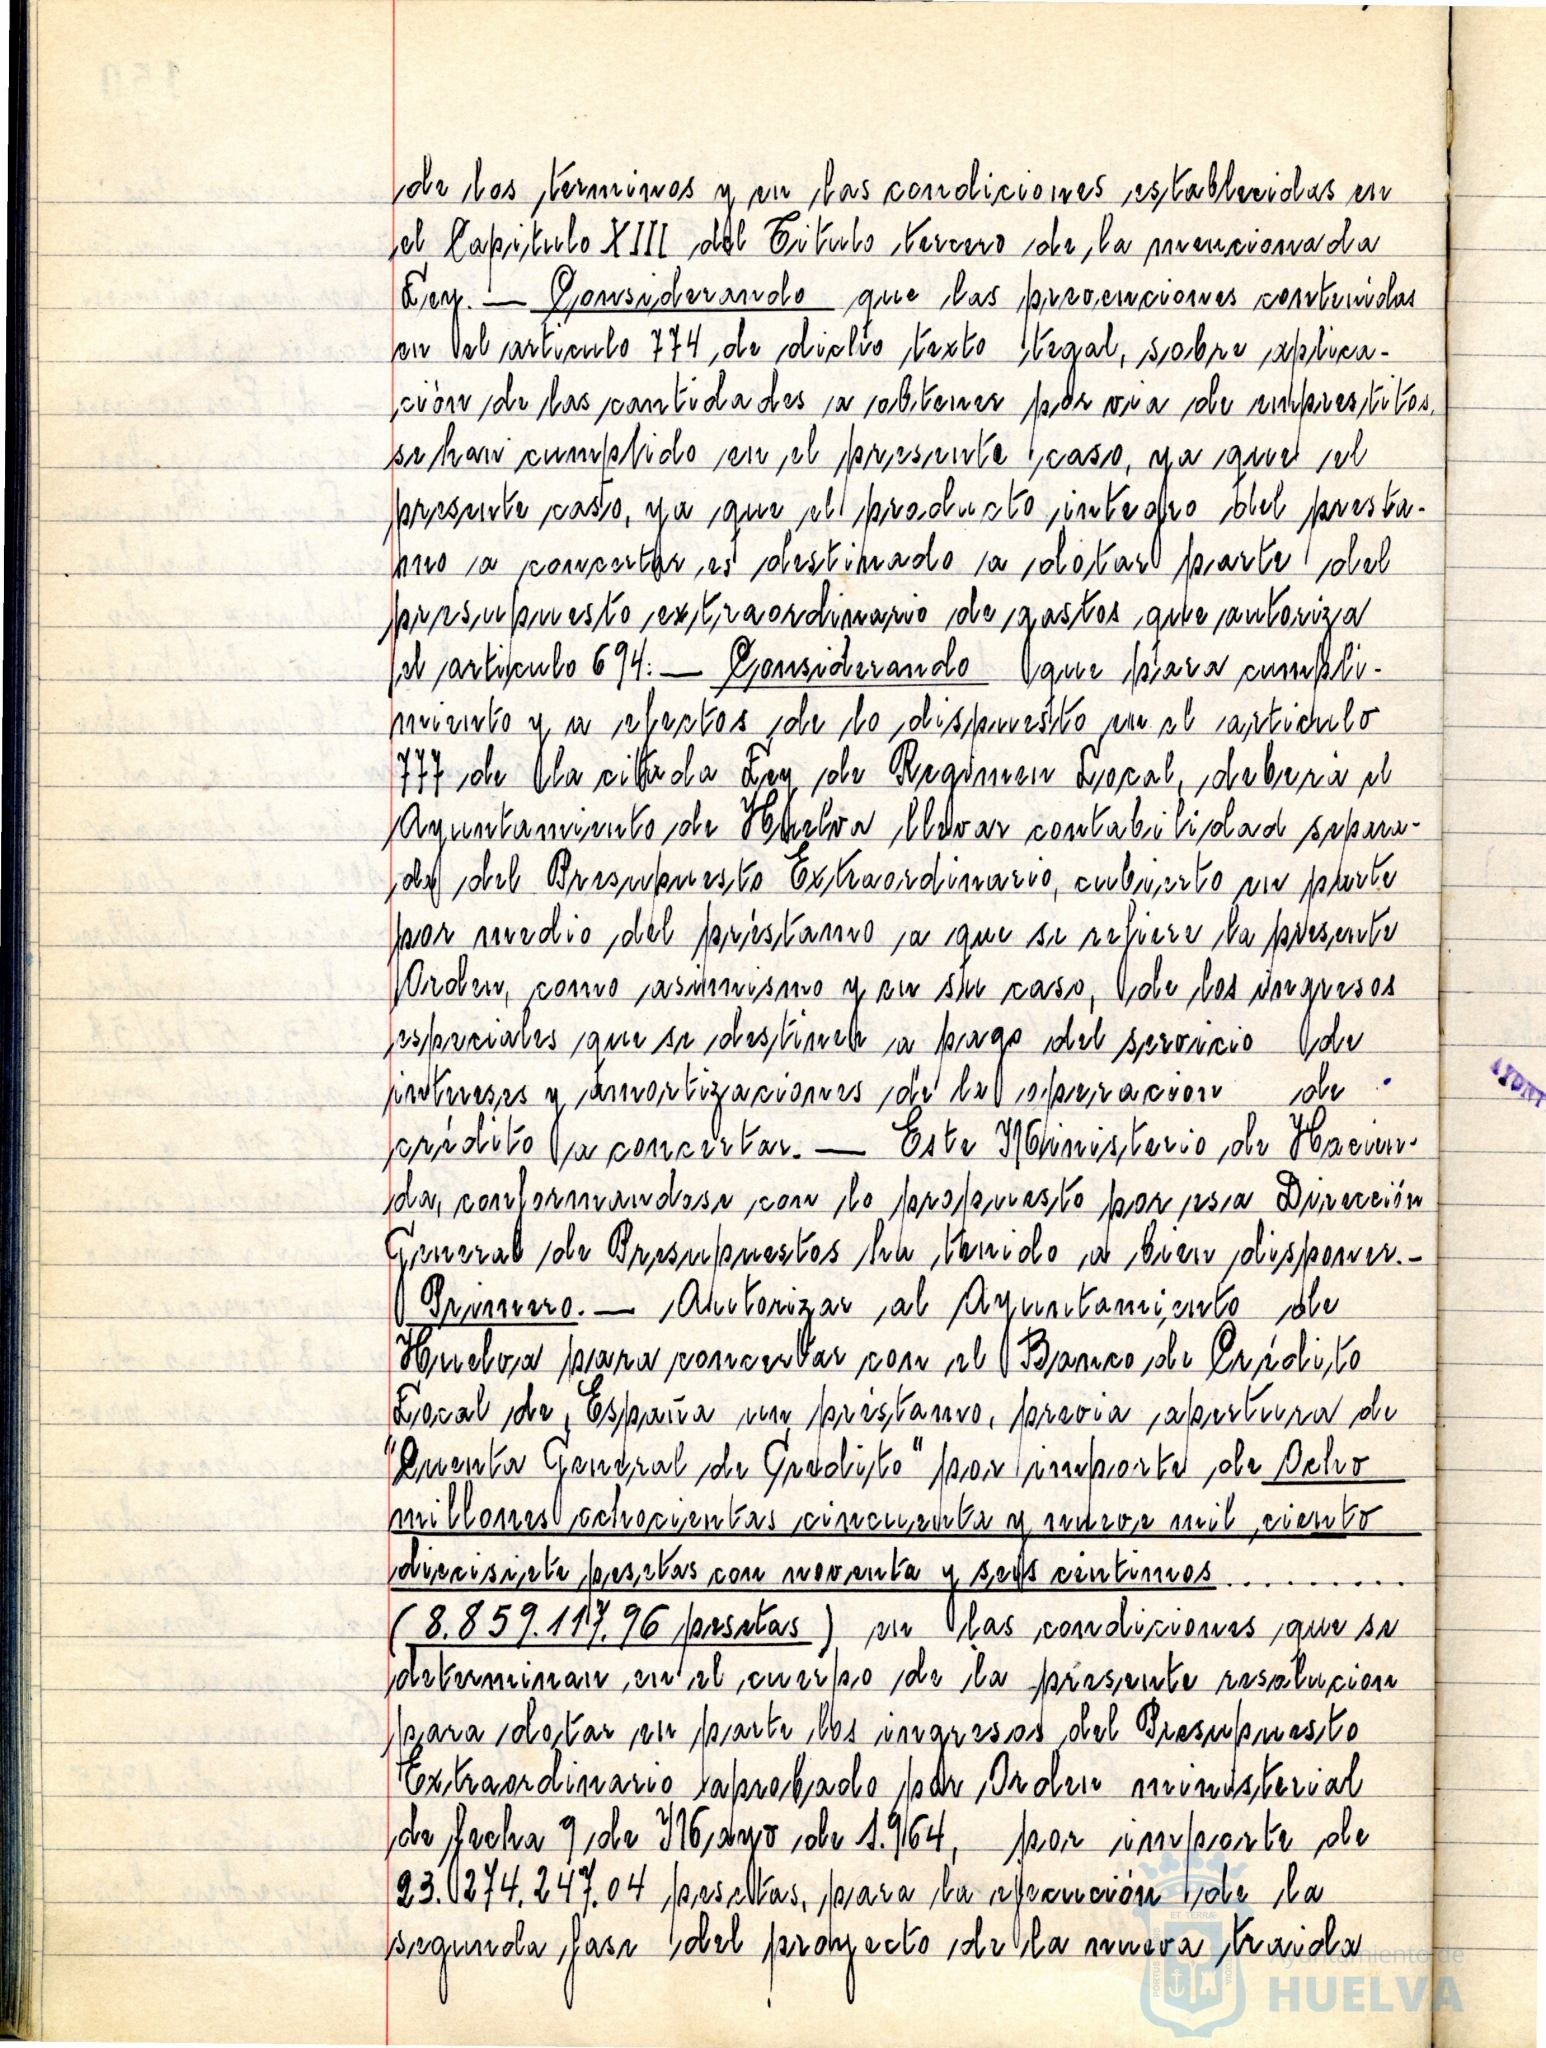 de los terminos y en las condiciones establecidas en
el Capitulo XIII del Titulo tercero de la mencionada
Ley.- — Considerando que las prevenciones contenidas
en el articulo 774 de dicho texto legal, sobre aplica-
ción de las cantidades a obtener por via de emprestitos,
se han cumplido en el presente caso, ya que el
presente caso, ya que el producto integro del presta-
mo a concertar es destinado a dotar parte del
presupuesto extraordinario de gastos que autoriza
el articulo 694.- — Considerando que para cumpli-
miento y a efectos de lo dispuesto en el articulo
777 de la citada Ley de Regimen Local, debera el
Ayuntamiento de Huelva llevar contabilidad separa-
da del Presupuesto Extraordinario, cubierto en parte
por medio del préstamo a que se refiere la presente
Orden, como asimismo y en su caso, de los ingresos
especiales que se destinen a pago del servicio de
intereses y amortizaciones de la operacion de
crédito a concertar. — Este Ministerio de Hacien-
da, conformandose con lo propuesto por esa Dirección
General de Presupuestos ha tenido a bien disponer.-
Primero. — Autorizar al Ayuntamiento de
Huelva para concertar con el Banco de Crédito
Local de España un préstamo, previa apertura de
"Cuenta General de Credito" por importe de Ocho
millones ochocientas cincuenta y nueve mil ciento
diecisiete pesetas con noventa y seis centimos.........
(8.859.117,96 pesetas) en las condiciones que se
determinan en el cuerpo de la presente resolucion
para dotar en parte los ingresos del Presupuesto
Extraordinario aprobado por Orden ministerial
de fecha 9 de Mayo de 1.964, por importe de
23.274.247,04 pesetas, para la ejecución de la
segunda fase del proyecto de la nueva traida
Ayuntamiento de
HUELVA